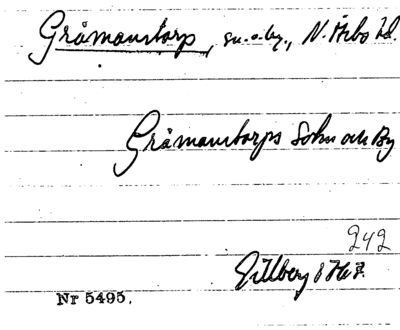 Gråmanstorp, sn. o. by., N. Åsbo hd.
Gråmanstorps Sokn och By
242
Gillberg 1767.
Nr 5495.